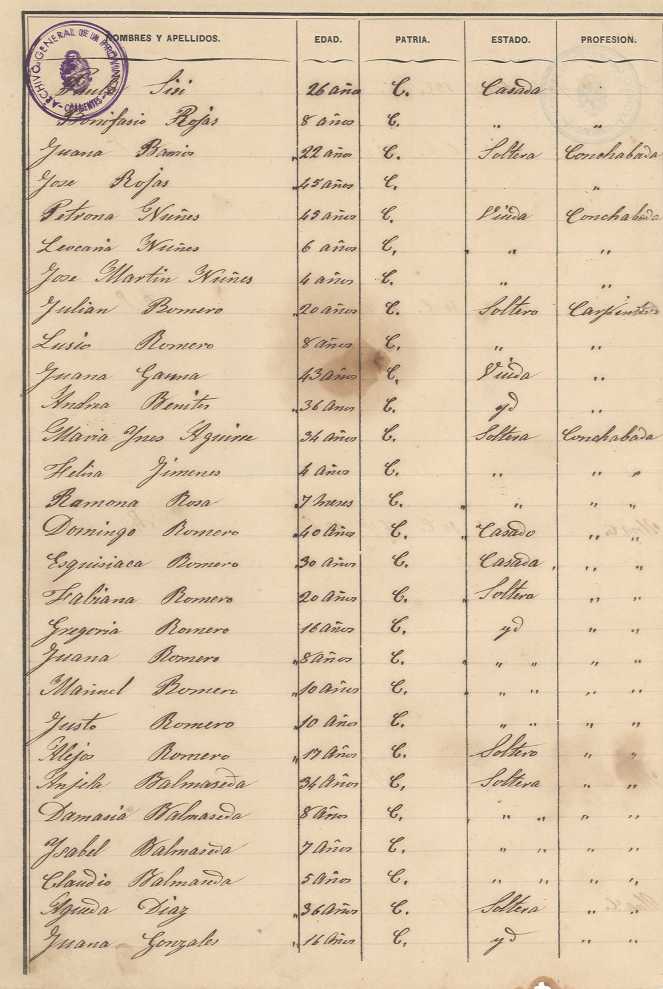 NOMBRES Y APELLIDOS. EDAD. PATRIA. ESTADO. PROFESION.
ARCHIVO GENERAL DE LA PROVINCIA
CORRIENTES
Sisi 26 años C. Casada
Bonifasio Rojas 8 años C. " "
Juana Barrios 22 años C. Soltera Conchabada
Jose Rojas 45 años C. "
Petrona Nuñes 43 años C. Viuda Conchabada
Leocaria Nuñes 6 años C, " "
Jose Martin Nuñes 4 años C. " "
Julian Romero 20 años C. Soltero Carpintero
Lusio Romero 8 años C. " "
Juana Gauna 43 años C, Viuda "
Andrea Benites 36 años C. yd "
Maria Ynes Aguirre 34 años C. Soltera Conchabada
Felisa Jimenes 4 años C. " " "
Ramona Rosa 7 meses C. " " "
Domingo Romero 40 años C. Casado " "
Esquisiaca Romero 30 años C. Casada " "
Fabiana Romero 20 años C. Soltera " "
Gregoria Romero 16 años C. yd " "
Juana Romero 8 años C. " " " "
Manuel Romero 10 años C. " " " "
Justo Romero 10 años C. " " " "
Alejos Romero 17 años C. Soltero " "
Anjela Balmaseda 34 años C, Soltera " "
Damasia Balmaseda 8 años C. " " " "
Ysabel Balmaseda 7 años C, " " " "
Claudio Balmaseda 5 años C, " " " "
Agueda Diaz 36 años C. Soltera " "
Juana Gonzales 16 años C, yd " "